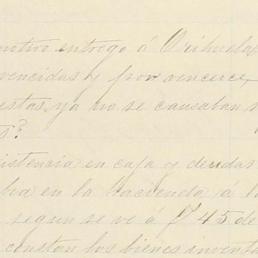 motivo entregó á Orihuela
vencidas y por vencerce,
estas, ya no se causaban
s?
istencia en caja y deudas
ba en la hacienda a l
segun se vé á f 45 de
constan los bienes inventa